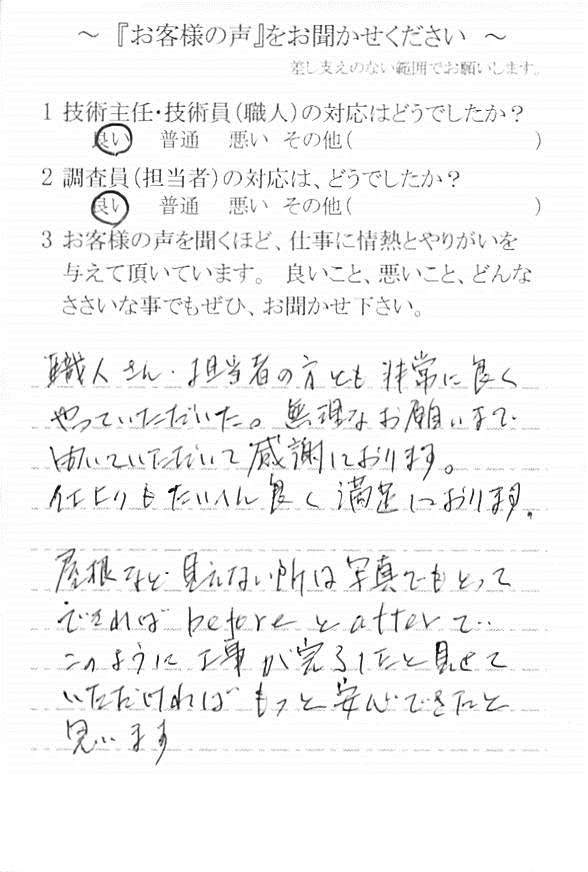 ～ 『お客様の声』をお聞かせください ～
差し支えのない範囲でお願いします。
1 技術主任・技術員（職人）の対応はどうでしたか？
良い 普通 悪い その他（ ）
2 調査員（担当者）の対応は、どうでしたか？
良い 普通 悪い その他（ ）
3 お客様の声を聞くほど、仕事に情熱とやりがいを
与えて頂いています。 良いこと、悪いこと、どんな
ささいな事でもぜひ、お聞かせ下さい。
職人さん・担当者の方とも非常に良く
やっていただいた。無理なお願いまで
聞いていただいて感謝しております。
仕上りもたいへん良く満足しております。
屋根など見えない所は写真でもとって
できればbeforeとafterで‥
このように工事が完了したと見せて
いただければもっと安心できたと
思います